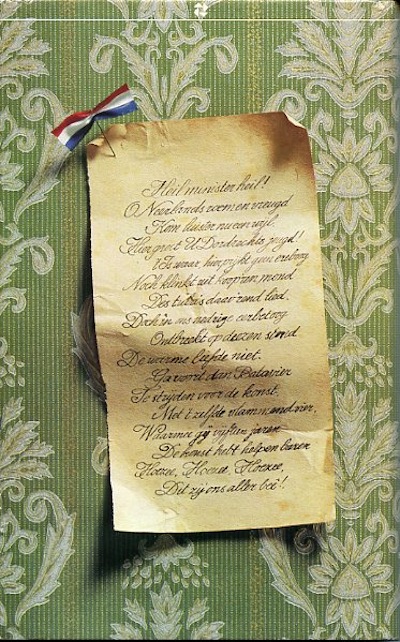 Heil minister heil!
O Neerlands roem en vreugd
Kom luister nu een wijl,
Hier groet U Dordrechts jeugd!
't Is waar, hier rijkt geen
Noch klinkt uit koop'ren mond
Des daav'rend lied,
Doch in ons nadrige
Ontbreekt op dezen stond
De warme liefde niet.
Ga voort dan Batavier
Te strijden voor de konst,
Met 't zelfde vlammend vier,
Waarmee gij vijftien jaren
De konst hebt helpen baren
Hoezee, Hoezee, Hoezee,
Dit zij ons aller beê!